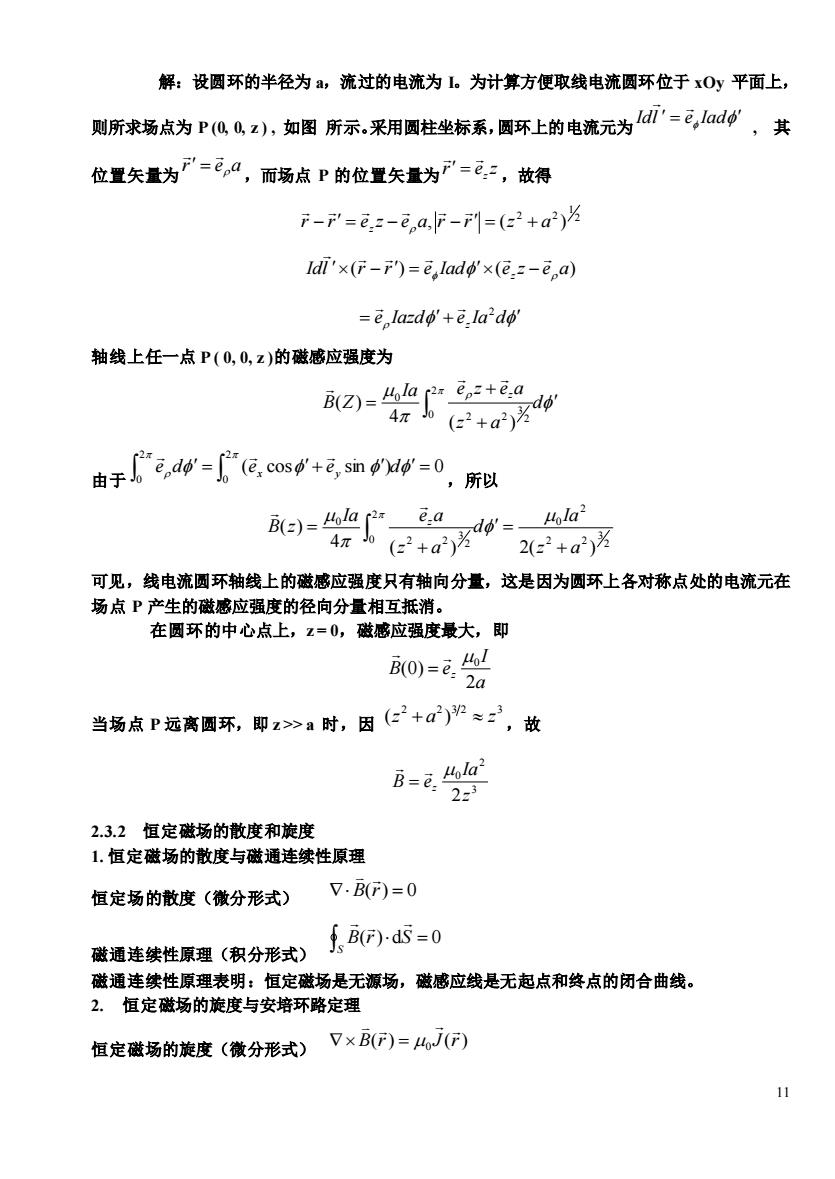 解：设圆环的半径为 a，流过的电流为 I。为计算方便取线电流圆环位于 xOy 平面上，
则所求场点为 P (0, 0, z ) , 如图 所示。采用圆柱坐标系，圆环上的电流元为 $Id\vec{l}\,' = \vec{e}_\phi Iad\phi'$ , 其
位置矢量为 $\vec{r}' = \vec{e}_\rho a$ ，而场点 P 的位置矢量为 $\vec{r}' = \vec{e}_z z$ ，故得
$\vec{r} - \vec{r}' = \vec{e}_z z - \vec{e}_\rho a, |\vec{r} - \vec{r}'| = (z^2 + a^2)^{1/2}$
$Id\vec{l}\,' \times (\vec{r} - \vec{r}') = \vec{e}_\phi Iad\phi' \times (\vec{e}_z z - \vec{e}_\rho a)$
$= \vec{e}_\rho Iazd\phi' + \vec{e}_z Ia^2 d\phi'$
轴线上任一点 P ( 0, 0, z )的磁感应强度为
$\vec{B}(Z) = \frac{\mu_0 Ia}{4\pi} \int_0^{2\pi} \frac{\vec{e}_\rho z + \vec{e}_z a}{(z^2 + a^2)^{3/2}} d\phi'$
由于 $\int_0^{2\pi} \vec{e}_\rho d\phi' = \int_0^{2\pi} (\vec{e}_x \cos\phi' + \vec{e}_y \sin\phi')d\phi' = 0$ ，所以
$\vec{B}(z) = \frac{\mu_0 Ia}{4\pi} \int_0^{2\pi} \frac{\vec{e}_z a}{(z^2 + a^2)^{3/2}} d\phi' = \frac{\mu_0 Ia^2}{2(z^2 + a^2)^{3/2}}$
可见，线电流圆环轴线上的磁感应强度只有轴向分量，这是因为圆环上各对称点处的电流元在
场点 P 产生的磁感应强度的径向分量相互抵消。
在圆环的中心点上，z = 0，磁感应强度最大，即
$\vec{B}(0) = \vec{e}_z \frac{\mu_0 I}{2a}$
当场点 P 远离圆环，即 z >> a 时，因 $(z^2 + a^2)^{3/2} \approx z^3$ ，故
$\vec{B} = \vec{e}_z \frac{\mu_0 Ia^2}{2z^3}$
2.3.2 恒定磁场的散度和旋度
1. 恒定磁场的散度与磁通连续性原理
恒定场的散度（微分形式） $\nabla \cdot \vec{B}(\vec{r}) = 0$
磁通连续性原理（积分形式） $\oint_S \vec{B}(\vec{r}) \cdot \mathrm{d}\vec{S} = 0$
磁通连续性原理表明：恒定磁场是无源场，磁感应线是无起点和终点的闭合曲线。
2. 恒定磁场的旋度与安培环路定理
恒定磁场的旋度（微分形式） $\nabla \times \vec{B}(\vec{r}) = \mu_0 \vec{J}(\vec{r})$
11